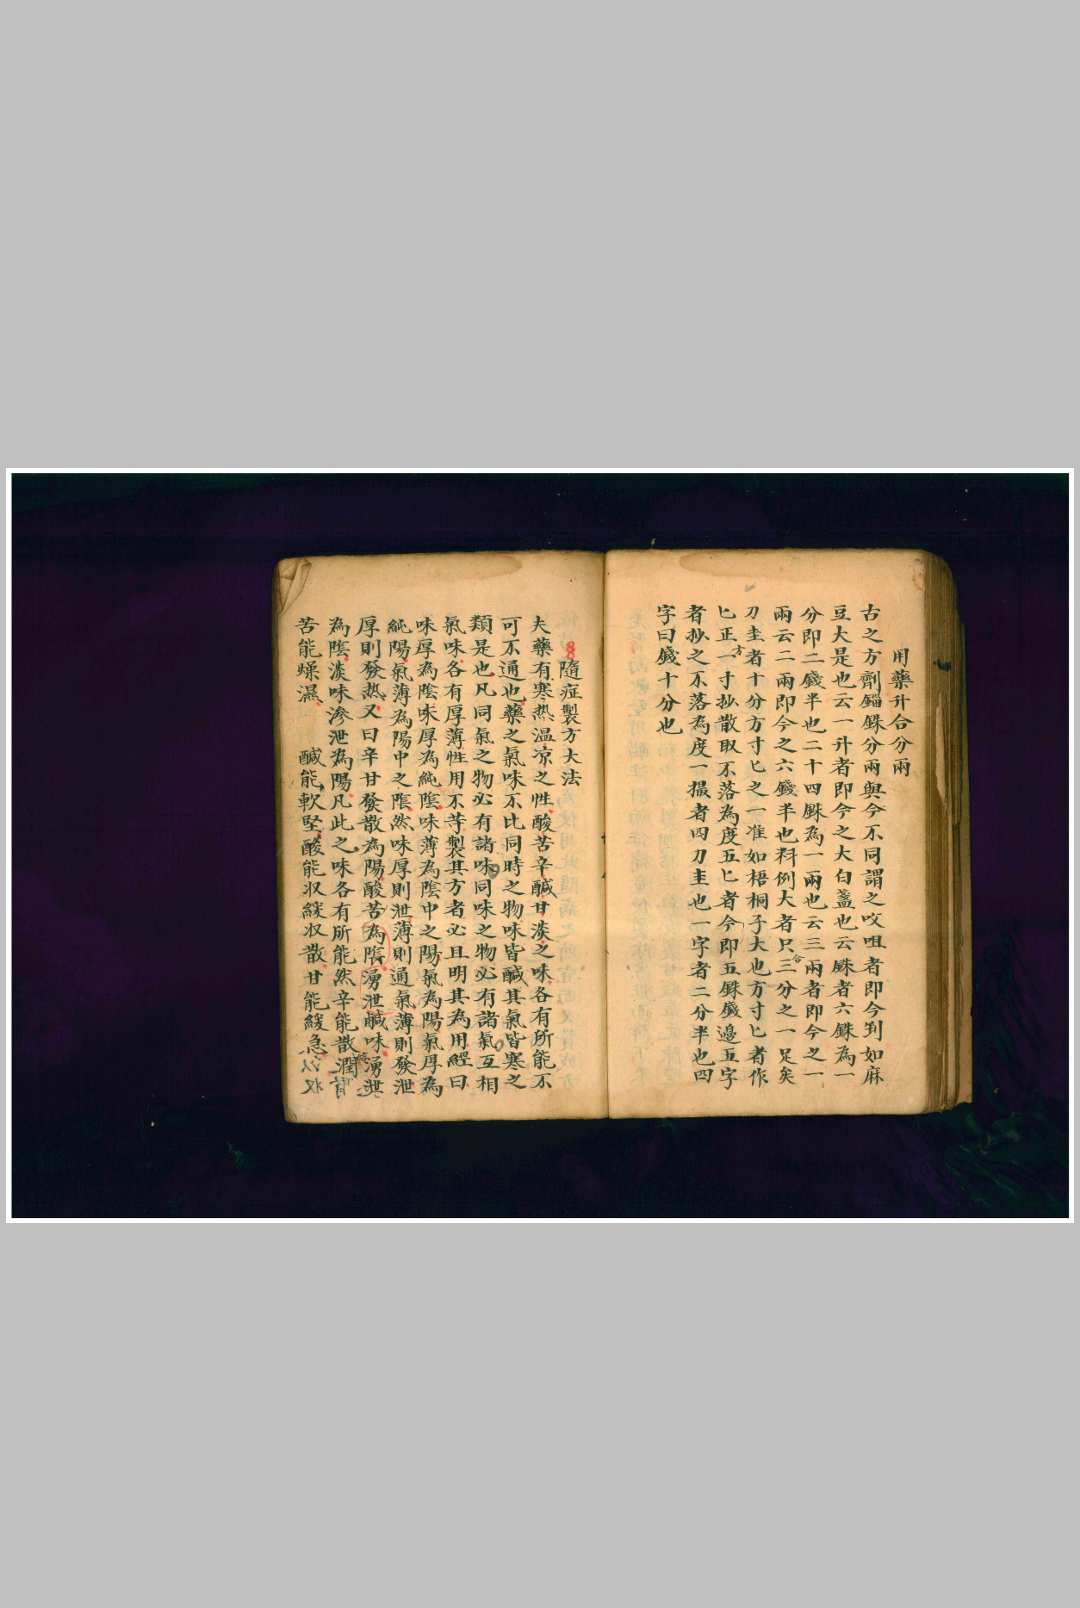 用藥升合分兩
古之方劑錙銖分兩與今不同謂之㕮咀者即今剉如麻
豆大是也云一升者即今之大白盞也云銖者六銖為一
分即二錢半也二十四銖為一兩也云三兩者即今之一
兩云二兩即今之六錢半也料例大者只合三分之一足矣
刀圭者十分方寸匕之一准如梧桐子大也方寸匕者作
匕正方一寸抄散取不落為度五匕者今即五銖錢邊五字
者抄之不落為度一撮者四刀圭也一字者二分半也四
字曰錢十分也
隨症製方大法
夫藥有寒熱温凉之性酸苦辛鹹甘淡之味各有所能不
可不通也藥之氣味不比同時之物味皆鹹其氣皆寒之
類是也凡同氣之物必有諸味同味之物必有諸氣互相
氣味各有厚薄性用不等製其方者必且明其為用經曰
味厚為陰味厚為純陰味薄為陰中之陽氣為陽氣厚為
純陽氣薄為陽中之陰然味厚則泄薄則通氣薄則發泄
厚則發熱又曰辛甘發散為陽酸苦為陰湧泄鹹味湧泄
為陰淡味滲泄為陽凡此之味各有所能然辛能散潤
苦能燥濕 鹹能軟堅酸能收緩收散甘能緩急以